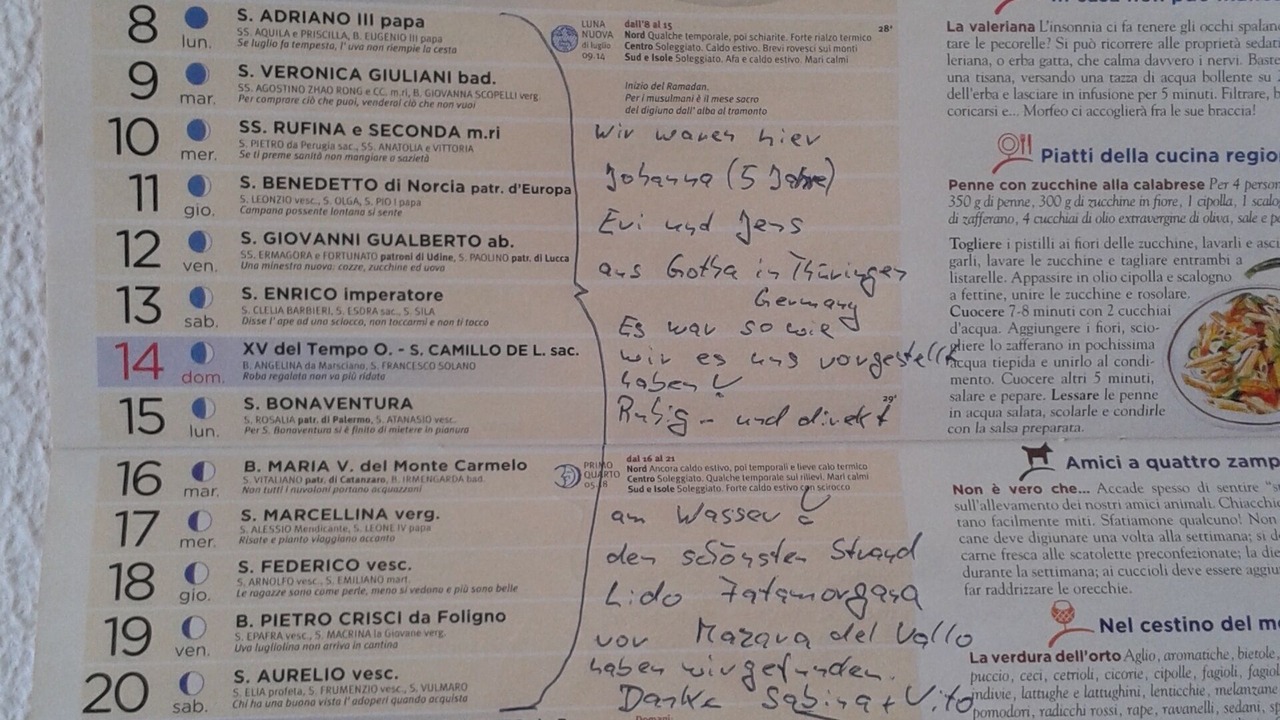 8 lun. S. ADRIANO III papa
SS. AQUILA e PRISCILLA, B. EUGENIO III papa
Se luglio fa tempesta, l'uva non riempie la cesta
9 mar. S. VERONICA GIULIANI bad.
SS. AGOSTINO ZHAO RONG e CC. m.ri, B. GIOVANNA SCOPELLI verg.
Per comprare ciò che puoi, venderai ciò che non vuoi
10 mer. SS. RUFINA e SECONDA m.ri
S. PIETRO da Perugia sac., SS. ANATOLIA e VITTORIA
Se ti preme sanità non mangiare a sazietà
11 gio. S. BENEDETTO di Norcia patr. d'Europa
S. LEONZIO vesc., S. OLGA, S. PIO I papa
Campana possente lontana si sente
12 ven. S. GIOVANNI GUALBERTO ab.
SS. ERMAGORA e FORTUNATO patroni di Udine, S. PAOLINO patr. di Lucca
Una minestra nuova: cozze, zucchine ed uova
13 sab. S. ENRICO imperatore
S. CLELIA BARBIERI, S. ESDRA sac., S. SILA
Disse l'ape ad uno sciocco, non toccarmi e non ti tocco
14 dom. XV del Tempo O. - S. CAMILLO DE L. sac.
B. ANGELINA da Marsciano, S. FRANCESCO SOLANO
Roba regalata non va più ridata
15 lun. S. BONAVENTURA
S. ROSALIA patr. di Palermo, S. ATANASIO vesc.
Per S. Bonaventura si è finito di mietere in pianura
16 mar. B. MARIA V. del Monte Carmelo
S. VITALIANO patr. di Catanzaro, B. IRMENGARDA bad.
Non tutti i nuvoloni portano acquazzoni
17 mer. S. MARCELLINA verg.
S. ALESSIO Mendicante, S. LEONE IV papa
Risate e pianto viaggiano accanto
18 gio. S. FEDERICO vesc.
S. ARNOLFO vesc., S. EMILIANO mart.
Le ragazze sono come perle, meno si vedono e più sono belle
19 ven. B. PIETRO CRISCI da Foligno
S. EPAFRA vesc., S. MACRINA la Giovane verg.
Uva lugliolina non arriva in cantina
20 sab. S. AURELIO vesc.
S. ELIA profeta, S. FRUMENZIO vesc., S. VULMARO
Chi ha una buona vista l'adoperi quando acquista
LUNA
NUOVA
di luglio
09.14
dall'8 al 15
28ª
Nord Qualche temporale, poi schiarite. Forte rialzo termico
Centro Soleggiato. Caldo estivo. Brevi rovesci sui monti
Sud e Isole Soleggiato. Afa e caldo estivo. Mari calmi
Inizio del Ramadan.
Per i musulmani è il mese sacro
del digiuno dall'alba al tramonto
Wir waren hier
Johanna (5 Jahre)
Evi und Jens
aus Gotha in Thüringen
Germany
Es war so wie
wir es uns vorgestellt
haben!
Ruhig - und direkt
29ª
PRIMO
QUARTO
dal 16 al 21
Nord Ancora caldo estivo, poi temporali e lieve calo termico
Centro Soleggiato. Qualche temporale sui rilievi. Mari calmi
Sud e Isole Soleggiato. Forte caldo estivo con scirocco
am Wasser
den schönsten Strand
Lido Fatamorgana
vor Mazara del Vallo
haben wir gefunden.
Danke Sabina + Vito
La valeriana L'insonnia ci fa tenere gli occhi spalan
tare le pecorelle? Si può ricorrere alle proprietà sedat
leriana, o erba gatta, che calma davvero i nervi. Baste
una tisana, versando una tazza di acqua bollente su
dell'erba e lasciare in infusione per 5 minuti. Filtrare, b
coricarsi e... Morfeo ci accoglierà fra le sue braccia!
Piatti della cucina regio
Penne con zucchine alla calabrese Per 4 person
350 g di penne, 300 g di zucchine in fiore, 1 cipolla, 1 scalo
di zafferano, 4 cucchiai di olio extravergine di oliva, sale e p
Togliere i pistilli ai fiori delle zucchine, lavarli e asci
garli, lavare le zucchine e tagliare entrambi a
listarelle. Appassire in olio cipolla e scalogno
a fettine, unire le zucchine e rosolare.
Cuocere 7-8 minuti con 2 cucchiai
d'acqua. Aggiungere i fiori, scio-
gliere lo zafferano in pochissima
acqua tiepida e unirlo al condi-
mento. Cuocere altri 5 minuti,
salare e pepare. Lessare le penne
in acqua salata, scolarle e condirle
con la salsa preparata.
Amici a quattro zamp
Non è vero che... Accade spesso di sentire "s
sull'allevamento dei nostri amici animali. Chiacchi
tano facilmente miti. Sfatiamone qualcuno! Non
cane deve digiunare una volta alla settimana; si d
carne fresca alle scatolette preconfezionate; la die
durante la settimana; ai cuccioli deve essere aggiu
far raddrizzare le orecchie.
Nel cestino del me
La verdura dell'orto Aglio, aromatiche, bietole,
puccio, ceci, cetrioli, cicorie, cipolle, fagioli, fagiol
indivie, lattughe e lattughini, lenticchie, melanzane
pomodori, radicchi rossi, rape, ravanelli, sedani, sp
Domani: